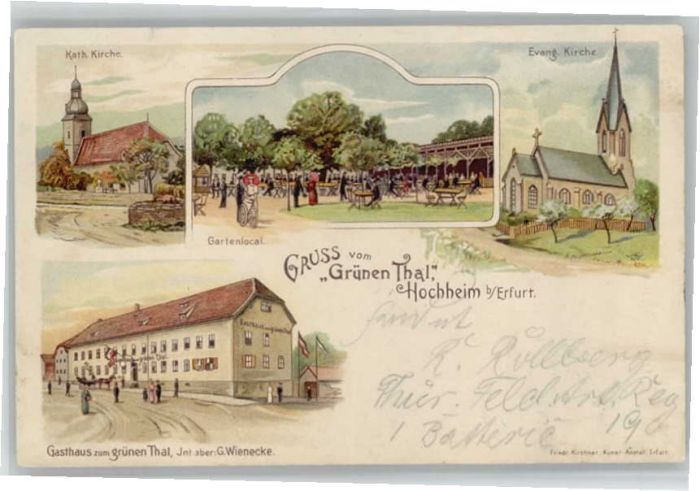 Kath. Kirche.
Evang. Kirche
Gartenlocal.
GRUSS vom
„Grünen Thal,"
Hochheim b/Erfurt.
Gasthaus zum grünen Thal
K. Kollberg
Thür. Feld. Art. Reg
1 Batterie 19
Gasthaus zum grünen Thal, Jnhaber: G. Wienecke.
Friedr. Kirchner, Kunst-Anstalt, Erfurt.